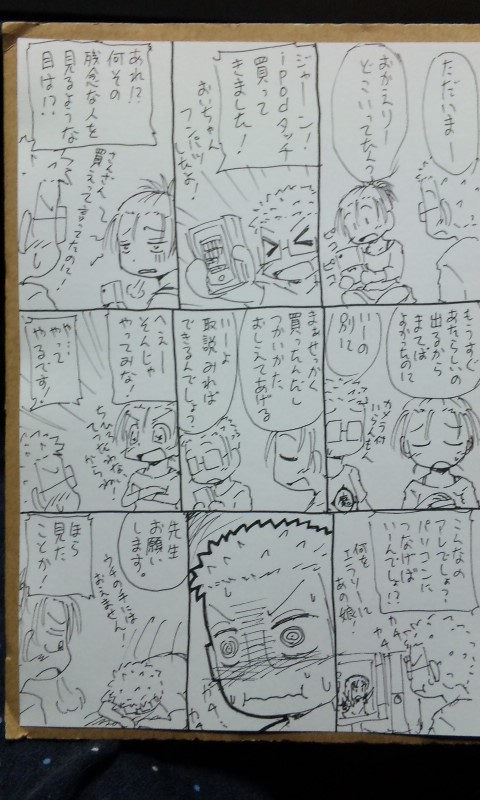 ただいまー
おかえりー
どこいってたんっ
ジャーン!
ipodタッチ
買って
きました!
おいちゃん
フンパツ
したよ!
あれ!?
何その
残念な人を
見るような
目は!?
さんざん
買えって言ってたのに!
もうすぐ
あたらしいの
出るから
まてば
よかったのに
いーの
別に
カメラ付
いらんもん
まぁせっかく
買ったんだし
つかいかた
おしえてあげる
いーよ
取説みれば
できるんでしょ?
へえー
そんじゃ
やってみな!
や…
やって
やるです!
こんなの
アレでしょ?
パソコンに
つなげば
いーんでしょ!?
何を
エラソーに
あの娘!
カチ
カチ
先生
お願い
します。
ウチの手には
おえません!
ほら
見た
ことか!